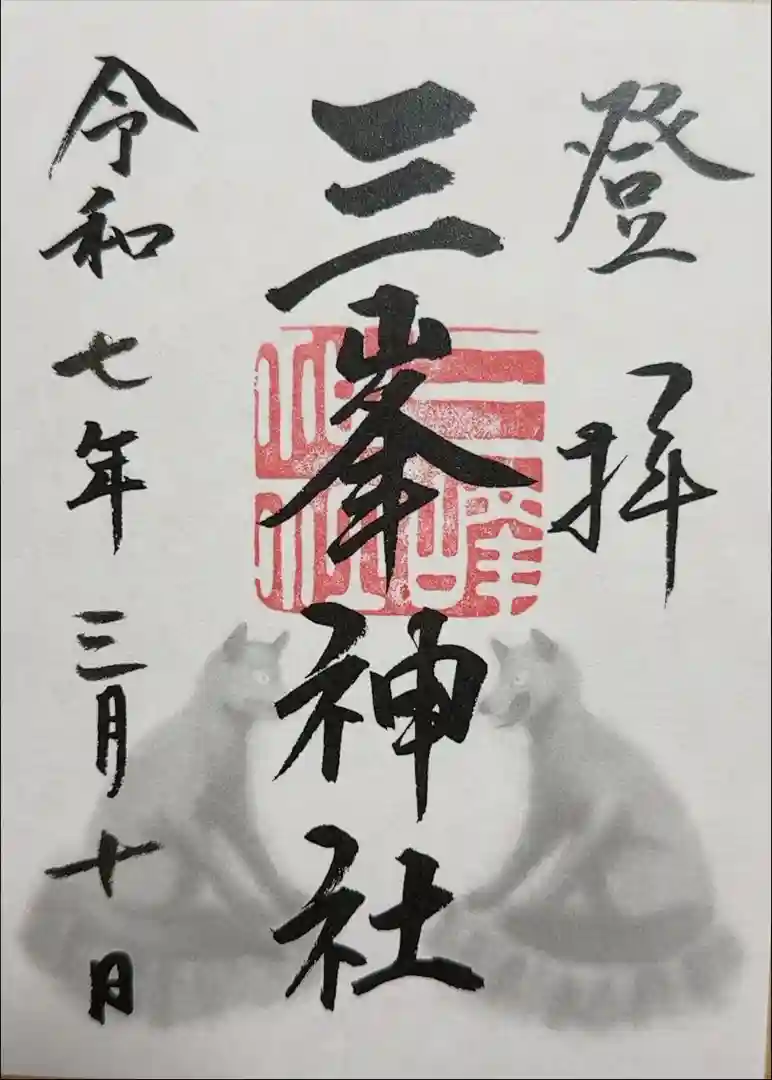 登拝
三峯神社
令和七年三月十日